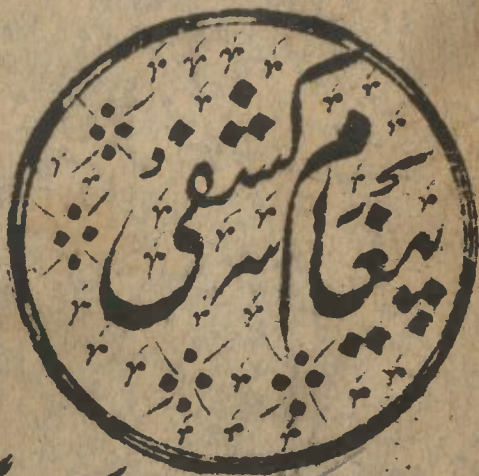 پیغام کشفی